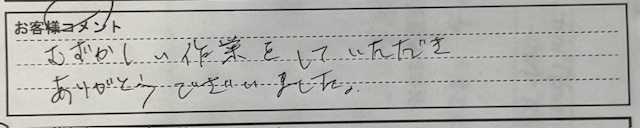 お客様コメント
むずかしい作業をしていただき
ありがとうございました。